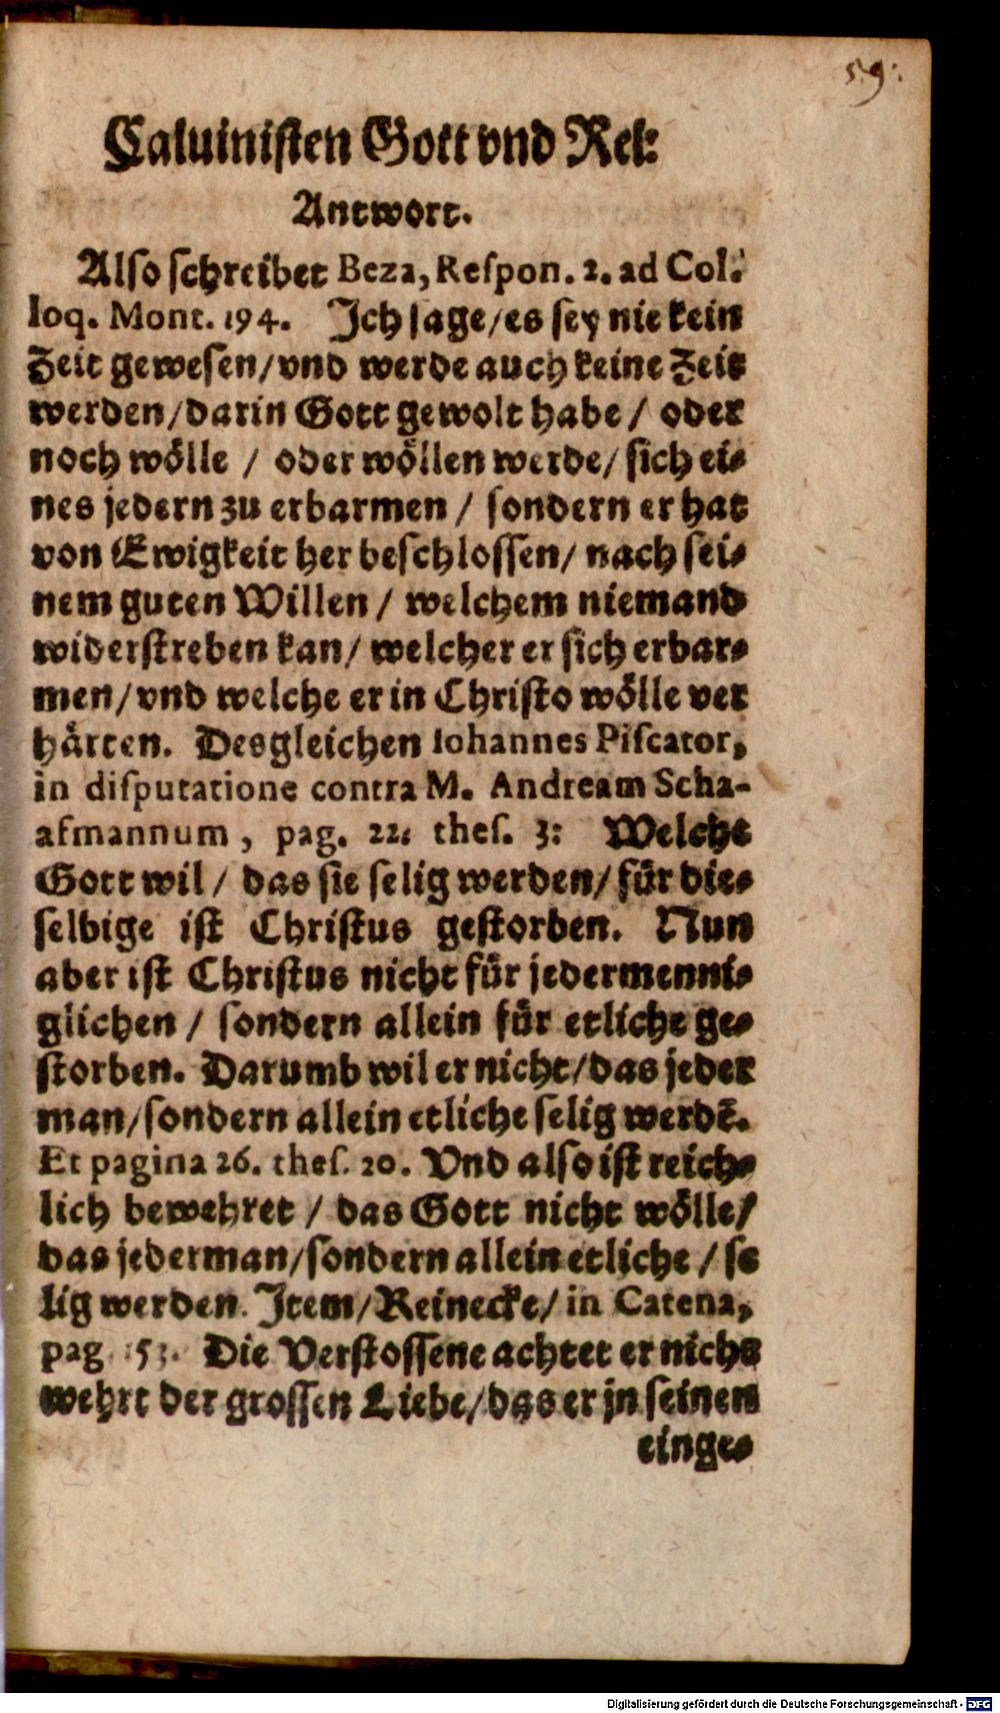 59.
Caluinisten Gott vnd Rel:
Antwort.
Also schreibet Beza, Respon. 2. ad Col.
loq. Mont. 194. Ich sage/es sey nie kein
Zeit gewesen/vnd werde auch keine Zeit
werden/darin Gott gewolt habe / oder
noch wölle / oder wöllen werde/ sich ei⸗
nes jedern zu erbarmen / sondern er hat
von Ewigkeit her beschlossen/ nach sei⸗
nem guten Willen / welchem niemand
widerstreben kan/ welcher er sich erbar⸗
men/vnd welche er in Christo wölle ver
härten. Desgleichen Iohannes Piscator,
in disputatione contra M. Andream Scha-
afmannum , pag. 22. thes. 3: Welche
Gott wil / das sie selig werden/ für die⸗
selbige ist Christus gestorben. Nun
aber ist Christus nicht für jedermenni⸗
glichen / sondern allein für etliche ge⸗
storben. Darumb wil er nicht/das jeder
man/sondern allein etliche selig werdē.
Et pagina 26. thes. 20. Vnd also ist reich⸗
lich bewehret / das Gott nicht wölle/
das jederman/sondern allein etliche / se
lig werden. Item/Reinecke/ in Catena,
pag. 53. Die Verstossene achtet er nicht
wehrt der grossen Liebe/das er jn seinen
einge⸗
Digitalisierung gefördert durch die Deutsche Forschungsgemeinschaft - DFG